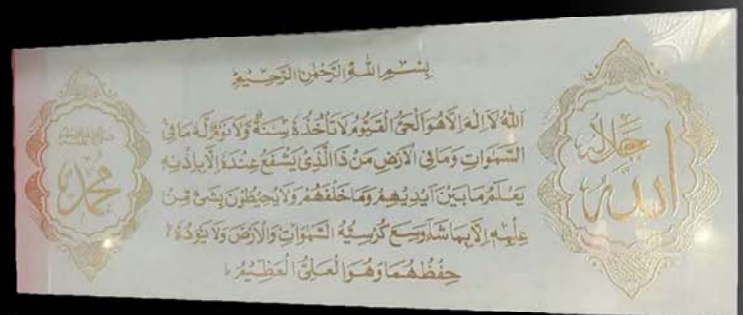 بِسْمِ اللّٰهِ الرَّحْمٰنِ الرَّحِيْمِ
اَللّٰهُ لَآ اِلٰهَ اِلَّا هُوَ الْحَيُّ الْقَيُّوْمُ لَا تَأْخُذُهٗ سِنَةٌ وَّلَا نَوْمٌ لَهٗ مَا فِى
السَّمٰوَاتِ وَمَا فِى الْاَرْضِ مَنْ ذَا الَّذِىْ يَشْفَعُ عِنْدَهٗ اِلَّا بِاِذْنِهٖ
يَعْلَمُ مَا بَيْنَ اَيْدِيْهِمْ وَمَا خَلْفَهُمْ وَلَا يُحِيْطُوْنَ بِشَىْءٍ مِّنْ
عِلْمِهٖ اِلَّا بِمَا شَآءَ وَسِعَ كُرْسِيُّهُ السَّمٰوَاتِ وَالْاَرْضَ وَلَا يَئُوْدُهٗ
حِفْظُهُمَا وَهُوَ الْعَلِىُّ الْعَظِيْمُ
اللّٰه
جل جلاله
محمد